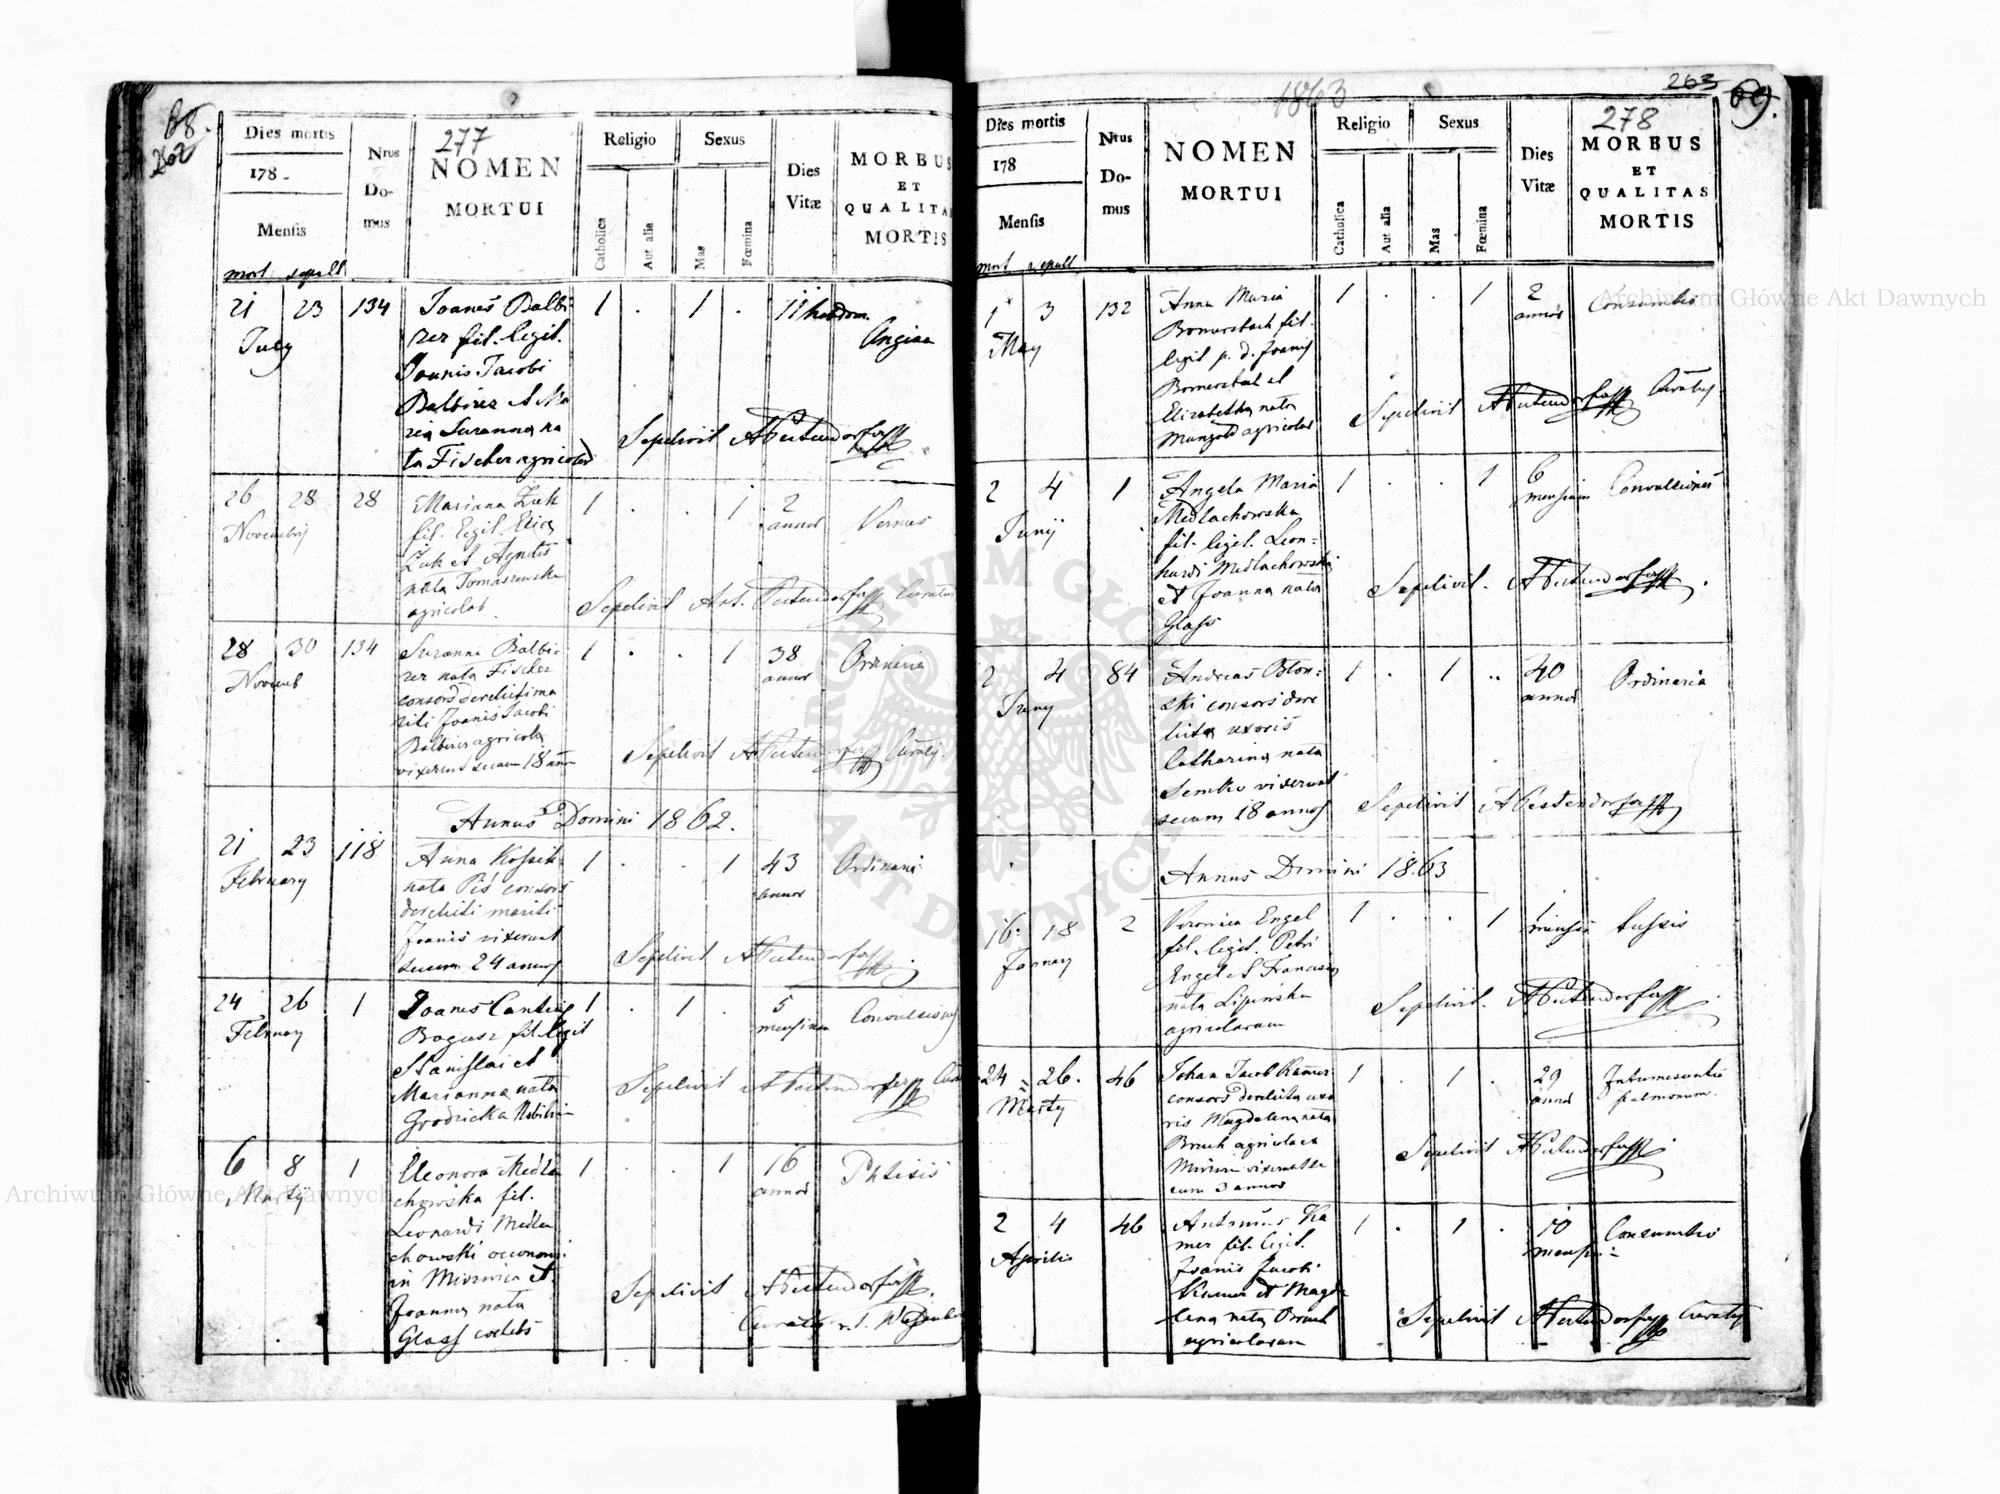 68.
262
277
Dies mortis
178-
Mensis
mort sepult
Nrus
Do-
mus
NOMEN
MORTUI
Religio
Catholica
Aut alia
Sexus
Mas
Fœmina
Dies
Vitæ
MORBUS
ET
QUALITAS
MORTIS
21 23 134
July
Joanes Balbi
rer fil. legit.
Joanis Jacobi
Balbirer et Ma
ria Suzanna na
ta Fischer agricolar
1 . 1 .
11 hebdom.
Angina
Sepelivit
26 28 28
Novembrij
Marianna Zuk
fil. legit.
Zuk et Agnetis
nata Tomaszewska
agricolar.
1 . . 1
2
annor
Sepelivit Ant.
28 30 134
Novemb
Suzanna Balbi-
rer nata Fischer
consors derelicti ma
riti Joanis Jacobi
Balbirer agricola
vixerunt secum 18 ann
1 . . 1
38
annor
Ordinaria
Sepelivit
Annus Domini 1862.
21 23 118
February
Anna
nata Piś consors
derelicti mariti
Joanis vixerunt
secum 24 annos
1 . . 1
43
annor
Ordinari
Sepelivit
24 26 1
February
Joanes Cantius
Bogusz fil. legit
Stanislai et
Marianna nata
Grodzicka Nobili
1 . 1 .
5
mensium
Convulsiones
Sepelivit
6 8 1
Martij
Eleonora Medla
chowska fil.
Leonardi Medla
chowski oeconomi
in et
Joanna nata
Glass coelebs
1 . . 1
16
annor
Phtisis
Sepelivit
1863
263
69.
278
Dies mortis
178
Mensis
mort sepult
Nrus
Do-
mus
NOMEN
MORTUI
Religio
Catholica
Aut alia
Sexus
Mas
Fœmina
Dies
Vitæ
MORBUS
ET
QUALITAS
MORTIS
1 3 132
May
Anna Maria
Bomersbach fil.
legit p. d. Joanis
Bomersbach et
Elizabetha nata
Mangold agricolar
1 . . 1
2
annor
Consumtio
Sepelivit
2 4 1
Junij
Angela Maria
Medlachowska
fil. legit. Leon-
hardi Medlachowski
et Joanna nata
Glass
1 . . 1
6
mensium
Convulsiones
Sepelivit.
2 4 84
Juny
Andreas Blon-
ski consors dere
licta uxoris
Catharina nata
Semko vixerunt
secum 18 annos
1 . 1 ..
40
annor
Ordinaria
Sepelivit
Annus Domini 1863
16. 18 2
January
Veronica Engel
fil. legit. Petri
Engel et Francisca
nata Lipińska
agricolarum
1 . . 1
1
mensis
tussis
Sepelivit.
24 26. 46
Marty
Johan Jacob Kamer
consors derelicta uxo
ris Magdalena nata
Bruch agricola ex
vixerunt se
cum 3 annos
1 . 1 .
29
annor
Intumescentia
pulmonum.
Sepelivit
2 4 46
Aprilis
Antonius Ka
mer fil. legit.
Joanis Jacobi
Kamer et Magda
lena nata Bruch
agricolarum
1 . 1 .
10
mensium
Consumtio
Sepelivit
Archiwum Główne Akt Dawnych
Archiwum Główne Akt Dawnych
ARCHIWUM GŁÓWNE AKT DAWNYCH